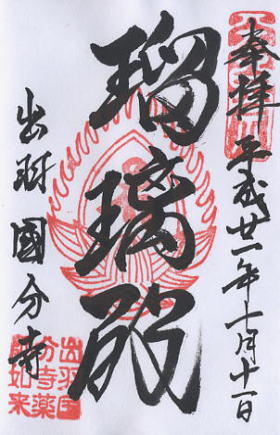 奉拝
平成廿一年十月十一日
瑠璃殿
出羽國分寺
出羽国
分寺薬
師如来